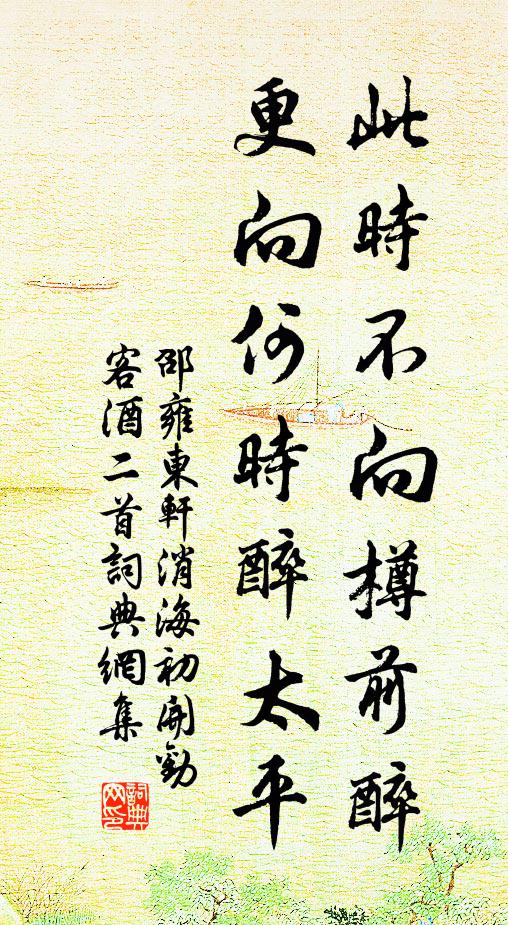 此時不向樽前醉
更向何時醉太平
邵雍東軒消海初開勸
客酒二首詞典網集
詞典
网印